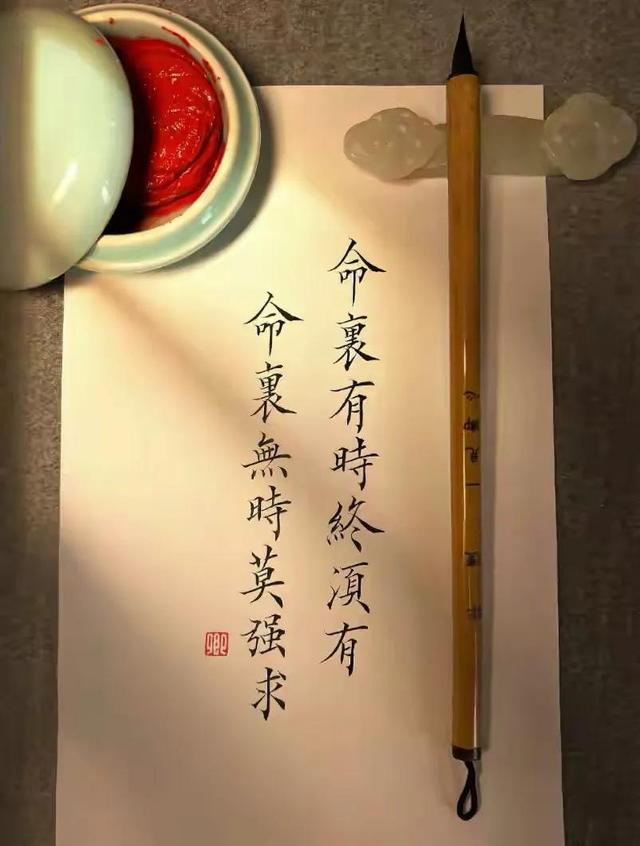 命裏有時終須有
命裏無時莫强求
卿